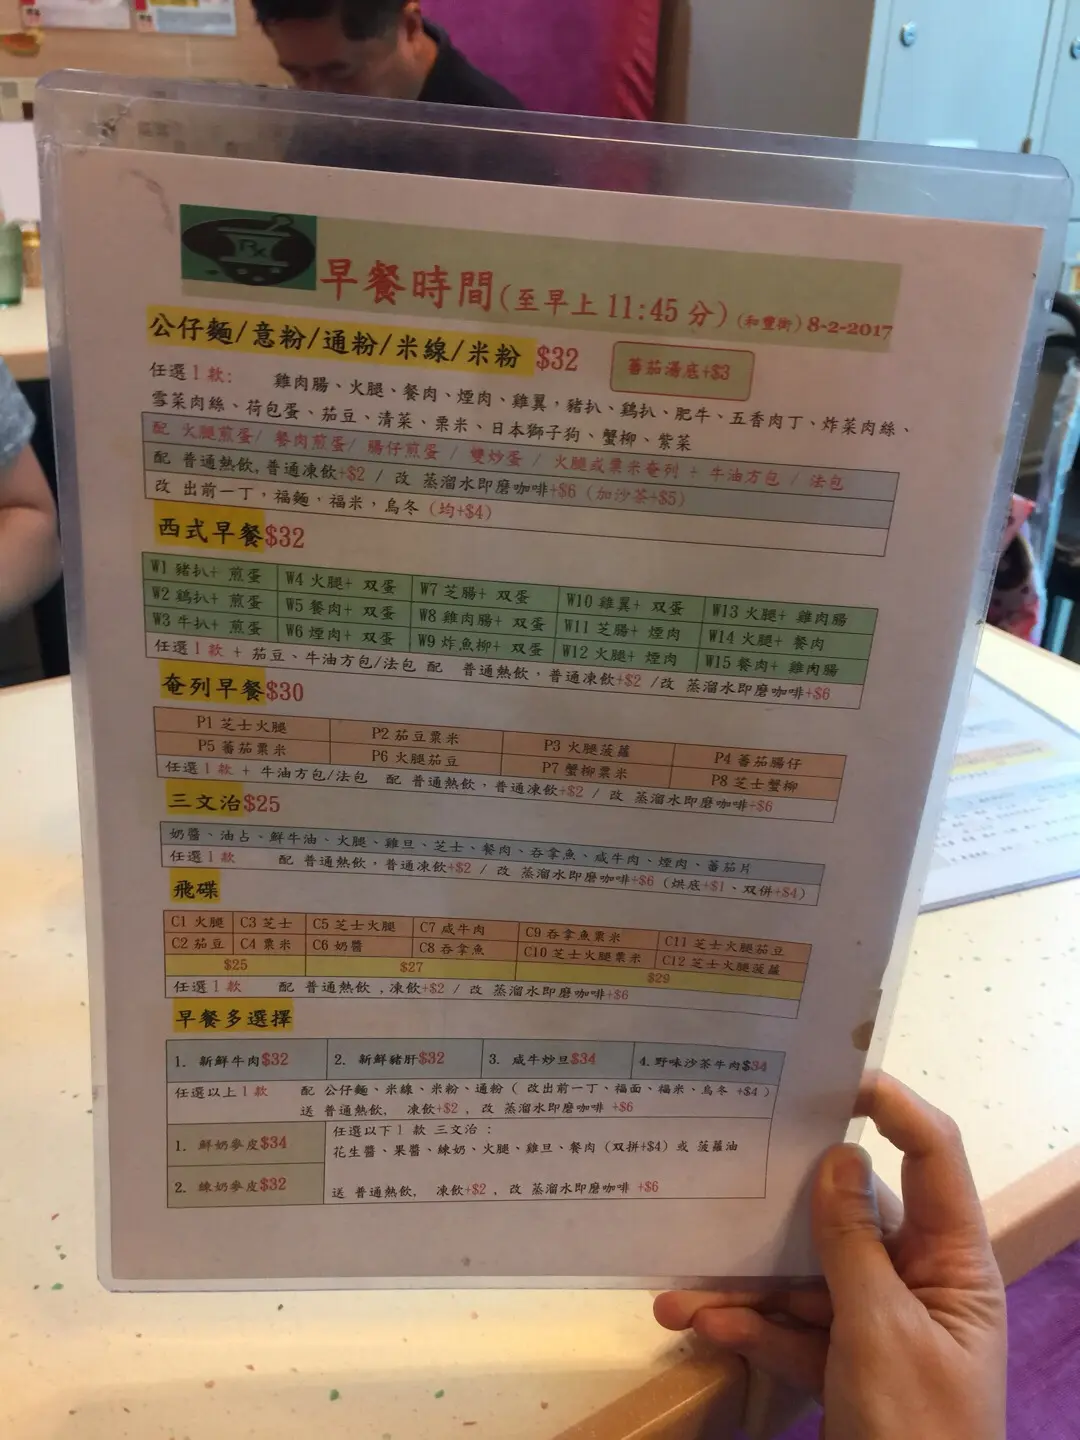 Rx
早餐時間(至早上 11:45 分) (和豐街) 8-2-2017
公仔麵/意粉/通粉/米線/米粉 $32 蕃茄湯底+$3
任選1款: 雞肉腸、火腿、餐肉、煙肉、雞翼,豬扒、鷄扒、肥牛、五香肉丁、炸菜肉絲、
雪菜肉絲、荷包蛋、茄豆、清菜、栗米、日本獅子狗、蟹柳、紫菜
配 火腿煎蛋/ 餐肉煎蛋/ 腸仔煎蛋 / 雙炒蛋 / 火腿或粟米奄列 + 牛油方包 / 法包
配 普通熱飲,普通凍飲+$2 / 改 蒸溜水即磨咖啡+$6 (加沙茶+$5)
改 出前一丁,福麵,福米,烏冬 (均+$4)
西式早餐$32
W1 豬扒+ 煎蛋 W4 火腿+ 双蛋 W7 芝腸+ 双蛋 W10 雞翼+ 双蛋 W13 火腿+ 雞肉腸
W2 鷄扒+ 煎蛋 W5 餐肉+ 双蛋 W8 雞肉腸+ 双蛋 W11 芝腸+ 煙肉 W14 火腿+ 餐肉
W3 牛扒+ 煎蛋 W6 煙肉+ 双蛋 W9 炸魚柳+ 双蛋 W12 火腿+ 煙肉 W15 餐肉+ 雞肉腸
任選1款 + 茄豆、牛油方包/法包 配 普通熱飲,普通凍飲+$2 /改 蒸溜水即磨咖啡+$6
奄列早餐$30
P1 芝士火腿 P2 茄豆粟米 P3 火腿菠蘿 P4 蕃茄腸仔
P5 蕃茄粟米 P6 火腿茄豆 P7 蟹柳粟米 P8 芝士蟹柳
任選1款 + 牛油方包/法包 配 普通熱飲,普通凍飲+$2 / 改 蒸溜水即磨咖啡+$6
三文治$25
奶醬、油占、鮮牛油、火腿、雞旦、芝士、餐肉、吞拿魚、咸牛肉、煙肉、蕃茄片
任選1款 配 普通熱飲,普通凍飲+$2 / 改 蒸溜水即磨咖啡+$6 (烘底+$1、双併+$4)
飛碟
C1 火腿 C3 芝士 C5 芝士火腿 C7 咸牛肉 C9 吞拿魚粟米 C11 芝士火腿茄豆
C2 茄豆 C4 粟米 C6 奶醬 C8 吞拿魚 C10 芝士火腿粟米 C12 芝士火腿菠蘿
$25 $27 $29
任選1款 配 普通熱飲 ,凍飲+$2 / 改 蒸溜水即磨咖啡+$6
早餐多選擇
1. 新鮮牛肉$32 2. 新鮮豬肝$32 3. 咸牛炒旦$34 4.野味沙茶牛肉$34
任選以上1款 配 公仔麵、米線、米粉、通粉 ( 改出前一丁、福面、福米、烏冬 +$4 )
送 普通熱飲, 凍飲+$2 , 改 蒸溜水即磨咖啡 +$6
1. 鮮奶麥皮$34
2. 練奶麥皮$32
任選以下1款 三文治 :
花生醬、果醬、練奶、火腿、雞旦、餐肉 (双拼+$4) 或 菠蘿油
送 普通熱飲, 凍飲+$2 , 改 蒸溜水即磨咖啡 +$6